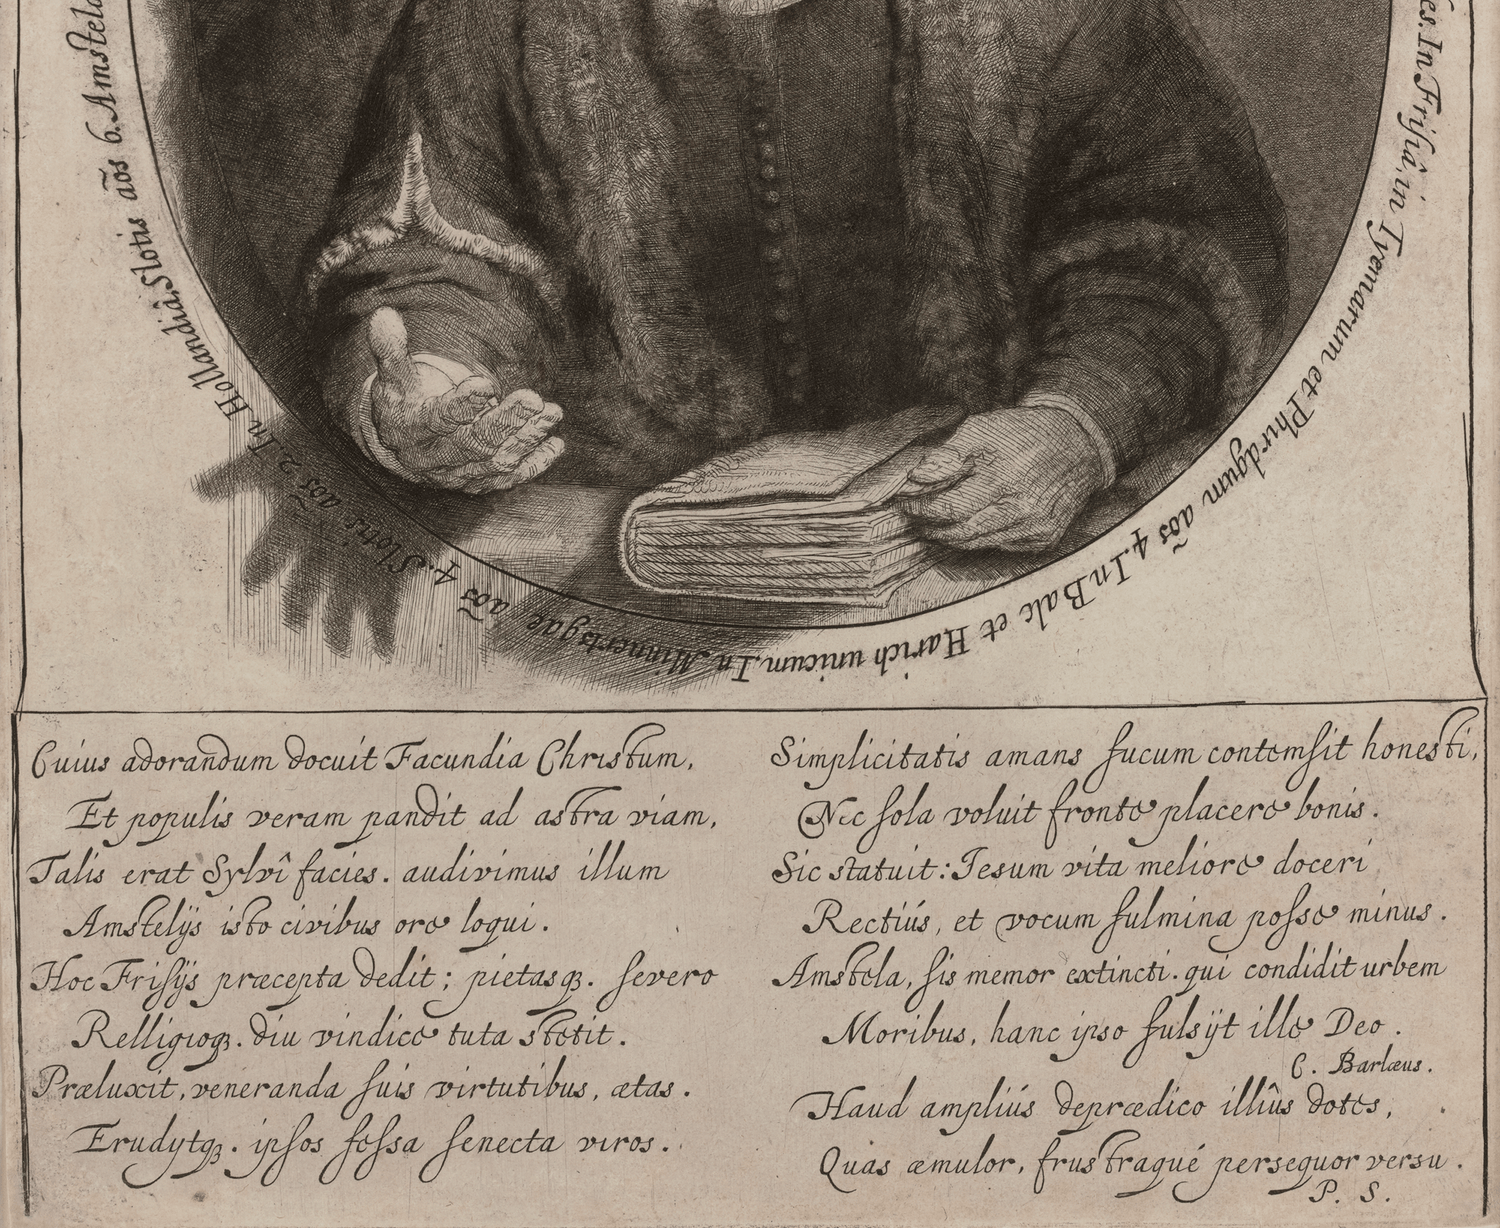 es. In Frisiâ, in Tyemarum et Phirdgum aõs 4. In Balc et Harich unicum. In Minnertsgae aõs 4. Slotis aõs 2. In Hollandiâ, Slotis aõs 6. Amstelo
Cuius adorandum docuit Facundia Christum,
Et populis veram pandit ad astra viam,
Talis erat Sylvî facies. audivimus illum
Amstelijs isto civibus ore loqui.
Hoc Frisijs præcepta dedit; pietasqꝫ. severo
Relligioqꝫ. diu vindice tuta stetit.
Præluxit, veneranda suis virtutibus, ætas.
Erudytqꝫ. ipsos fessa senecta viros.
Simplicitatis amans fucum contemsit honesti,
Nec sola voluit fronte placere bonis.
Sic statuit: Iesum vita meliore doceri
Rectiús, et vocum fulmina posse minus.
Amstela, sis memor extincti. qui condidit urbem
Moribus, hanc ipso fulsijt ille Deo.
C. Barlæus.
Haud ampliús deprædico illiûs dotes,
Quas æmulor, frustraqué persequor versu.
P. S.